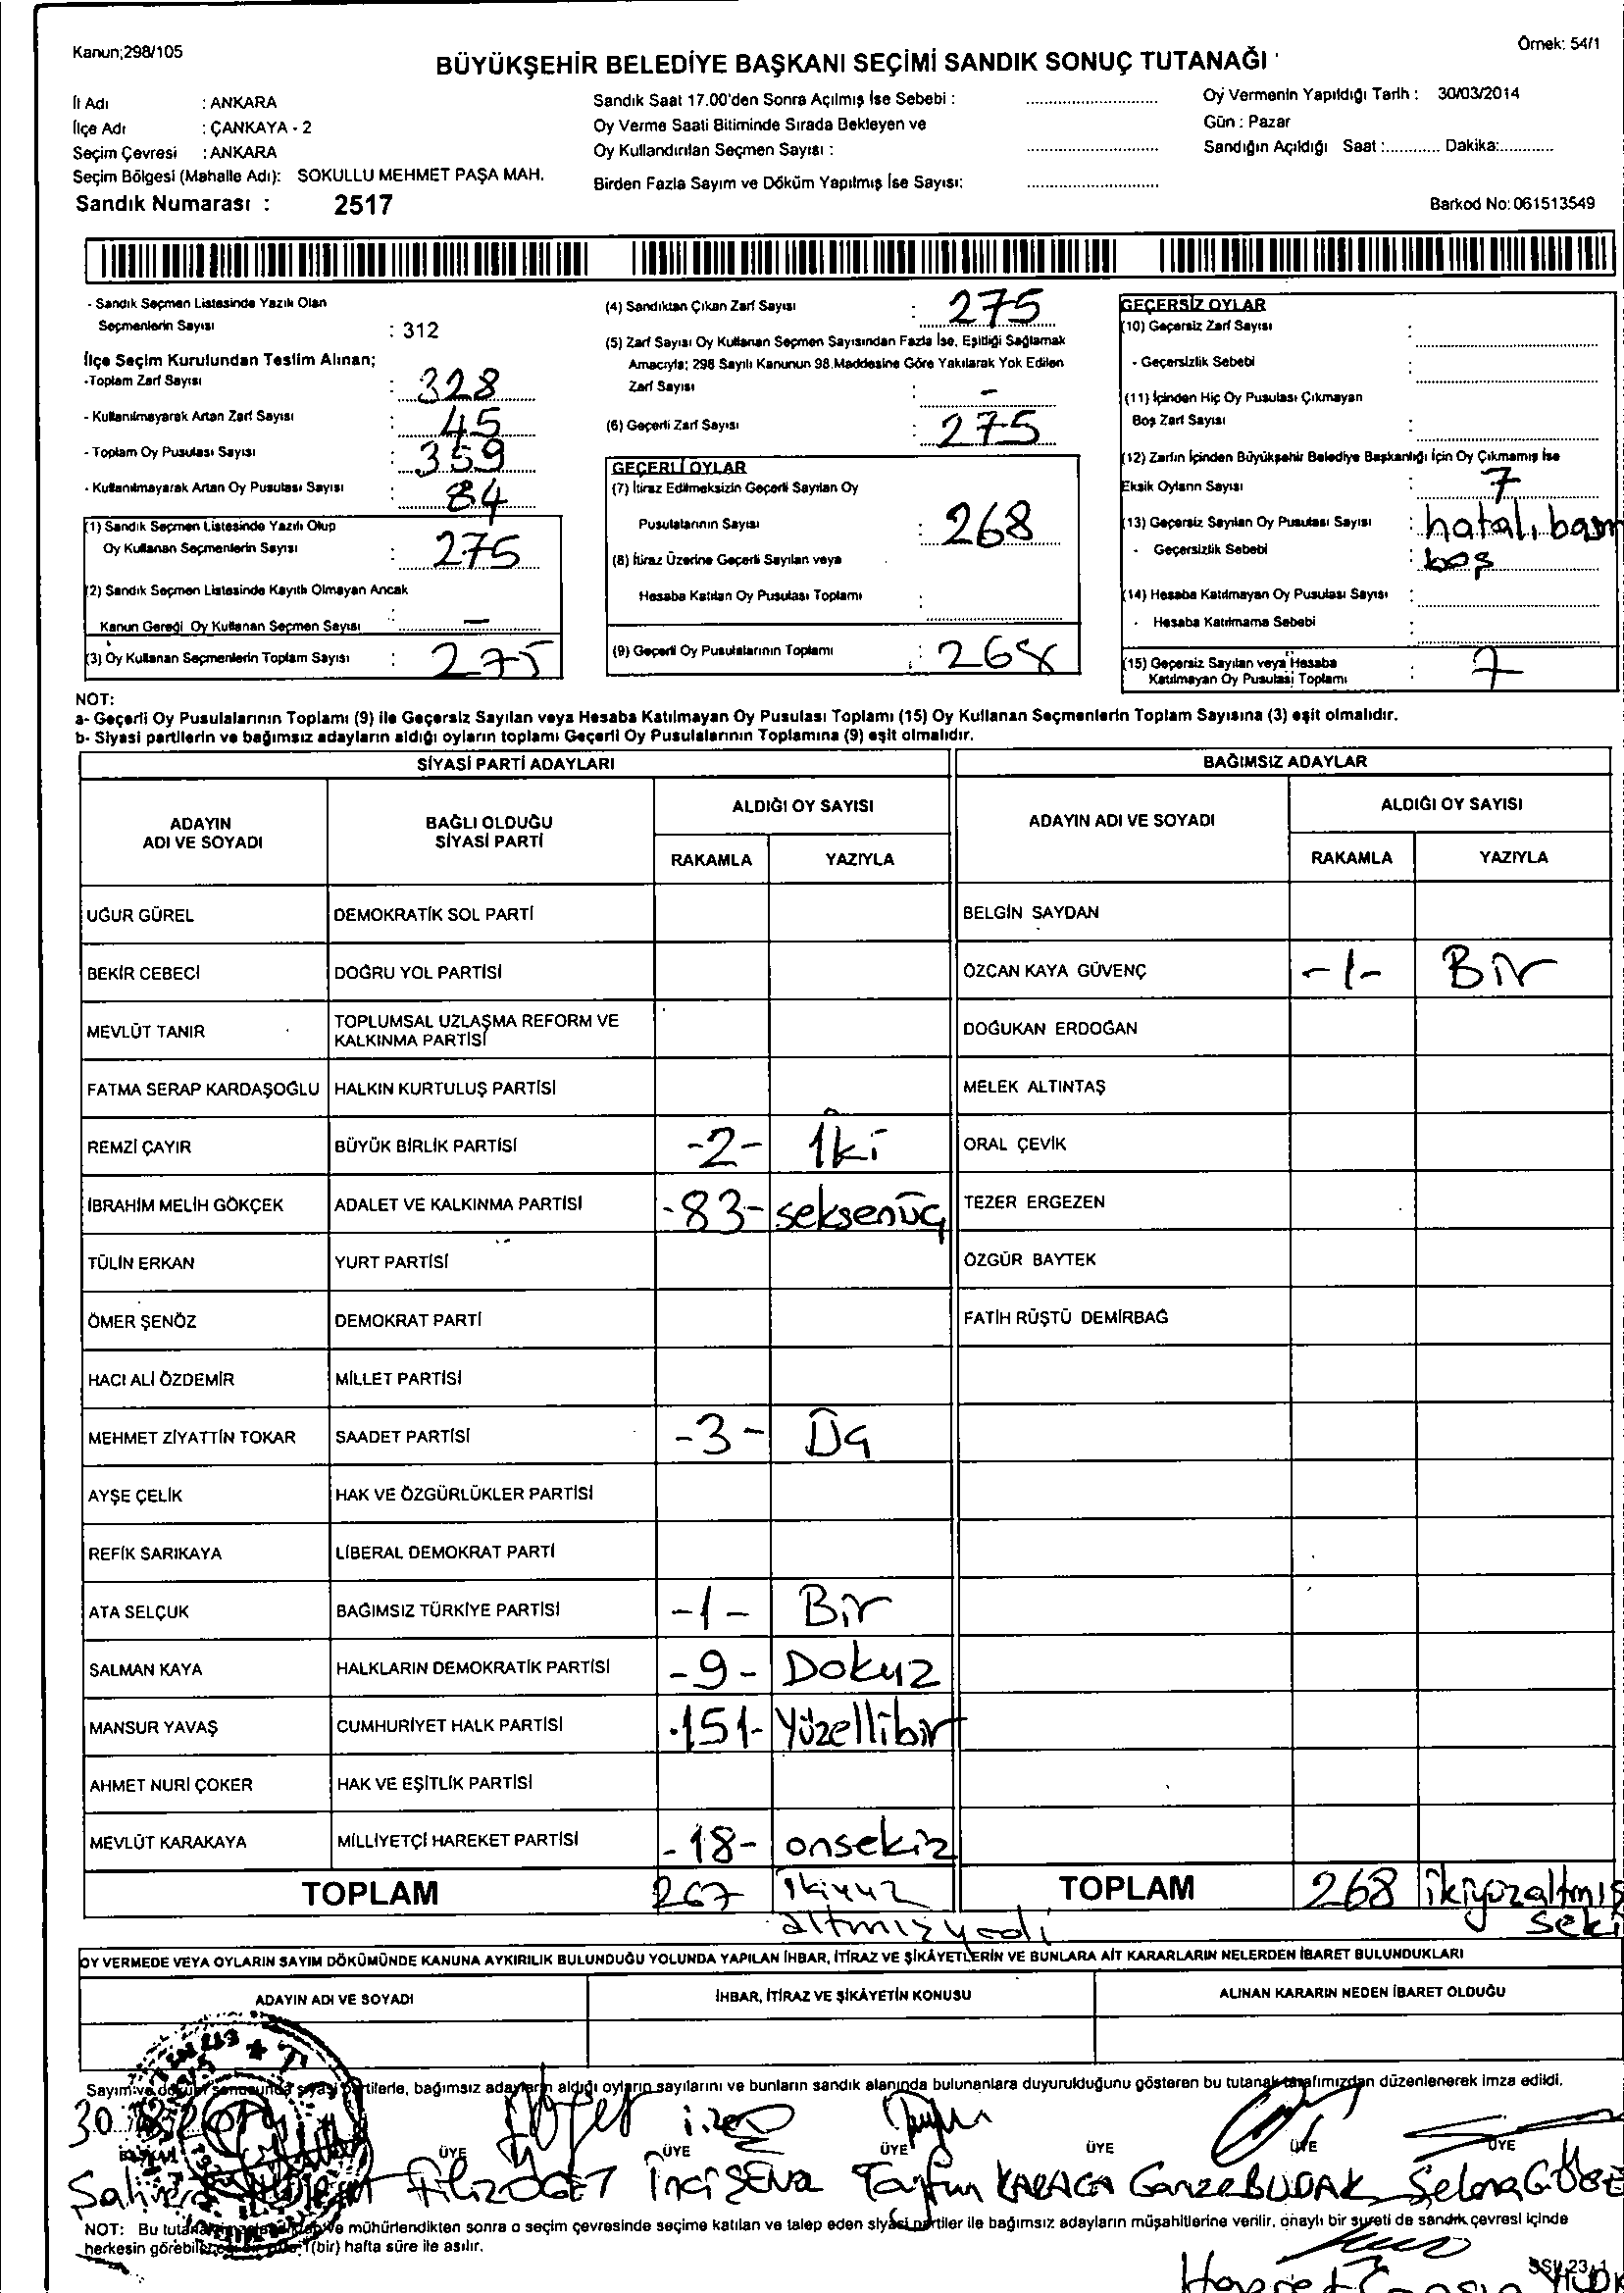 Kanun;298/105
Örnek: 54/1
BÜYÜKŞEHİR BELEDİYE BAŞKANI SEÇİMİ SANDIK SONUÇ TUTANAĞI
İl Adı : ANKARA
İlçe Adı : ÇANKAYA - 2
Seçim Çevresi : ANKARA
Seçim Bölgesi (Mahalle Adı): SOKULLU MEHMET PAŞA MAH.
Sandık Numarası : 2517
Sandık Saat 17.00'den Sonra Açılmış İse Sebebi :
Oy Verme Saati Bitiminde Sırada Bekleyen ve
Oy Kullandırılan Seçmen Sayısı :
Birden Fazla Sayım ve Döküm Yapılmış İse Sayısı:
Oy Vermenin Yapıldığı Tarih : 30/03/2014
Gün : Pazar
Sandığın Açıldığı Saat :............ Dakika:............
Barkod No: 061513549
- Sandık Seçmen Listesinde Yazılı Olan
Seçmenlerin Sayısı : 312
İlçe Seçim Kurulundan Teslim Alınan;
-Toplam Zarf Sayısı : 328
- Kullanılmayarak Artan Zarf Sayısı : 45
- Toplam Oy Pusulası Sayısı : 359
- Kullanılmayarak Artan Oy Pusulası Sayısı : 84
(1) Sandık Seçmen Listesinde Yazılı Olup
Oy Kullanan Seçmenlerin Sayısı : 275
(2) Sandık Seçmen Listesinde Kayıtlı Olmayan Ancak
Kanun Gereği Oy Kullanan Seçmen Sayısı : -
(3) Oy Kullanan Seçmenlerin Toplam Sayısı : 275
(4) Sandıktan Çıkan Zarf Sayısı : 275
(5) Zarf Sayısı Oy Kullanan Seçmen Sayısından Fazla İse, Eşitliği Sağlamak
Amacıyla; 298 Sayılı Kanunun 98.Maddesine Göre Yakılarak Yok Edilen
Zarf Sayısı : -
(6) Geçerli Zarf Sayısı : 275
GEÇERLİ OYLAR
(7) İtiraz Edilmeksizin Geçerli Sayılan Oy
Pusulalarının Sayısı : 268
(8) İtiraz Üzerine Geçerli Sayılan veya
Hesaba Katılan Oy Pusulası Toplamı :
(9) Geçerli Oy Pusulalarının Toplamı : 268
GEÇERSİZ OYLAR
(10) Geçersiz Zarf Sayısı :
- Geçersizlik Sebebi :
(11) İçinden Hiç Oy Pusulası Çıkmayan
Boş Zarf Sayısı :
(12) Zarfın İçinden Büyükşehir Belediye Başkanlığı İçin Oy Çıkmamış İse
Eksik Oyların Sayısı : 7
(13) Geçersiz Sayılan Oy Pusulası Sayısı : hatalı basım
- Geçersizlik Sebebi : boş
(14) Hesaba Katılmayan Oy Pusulası Sayısı :
- Hesaba Katılmama Sebebi :
(15) Geçersiz Sayılan veya Hesaba
Katılmayan Oy Pusulası Toplamı : 7
NOT:
a- Geçerli Oy Pusulalarının Toplamı (9) ile Geçersiz Sayılan veya Hesaba Katılmayan Oy Pusulası Toplamı (15) Oy Kullanan Seçmenlerin Toplam Sayısına (3) eşit olmalıdır.
b- Siyasi partilerin ve bağımsız adayların aldığı oyların toplamı Geçerli Oy Pusulalarının Toplamına (9) eşit olmalıdır.
SİYASİ PARTİ ADAYLARI BAĞIMSIZ ADAYLAR
ADAYIN ADI VE SOYADI BAĞLI OLDUĞU SİYASİ PARTİ ALDIĞI OY SAYISI ADAYIN ADI VE SOYADI ALDIĞI OY SAYISI
RAKAMLA YAZIYLA RAKAMLA YAZIYLA
UĞUR GÜREL DEMOKRATİK SOL PARTİ BELGİN SAYDAN
BEKİR CEBECİ DOĞRU YOL PARTİSİ ÖZCAN KAYA GÜVENÇ -1- Bir
MEVLÜT TANIR TOPLUMSAL UZLAŞMA REFORM VE KALKINMA PARTİSİ DOĞUKAN ERDOĞAN
FATMA SERAP KARDAŞOĞLU HALKIN KURTULUŞ PARTİSİ MELEK ALTINTAŞ
REMZİ ÇAYIR BÜYÜK BİRLİK PARTİSİ -2- İki ORAL ÇEVİK
İBRAHİM MELİH GÖKÇEK ADALET VE KALKINMA PARTİSİ -83- seksenüç TEZER ERGEZEN
TÜLİN ERKAN YURT PARTİSİ ÖZGÜR BAYTEK
ÖMER ŞENÖZ DEMOKRAT PARTİ FATİH RÜŞTÜ DEMİRBAĞ
HACI ALİ ÖZDEMİR MİLLET PARTİSİ
MEHMET ZİYATTİN TOKAR SAADET PARTİSİ -3- Üç
AYŞE ÇELİK HAK VE ÖZGÜRLÜKLER PARTİSİ
REFİK SARIKAYA LİBERAL DEMOKRAT PARTİ
ATA SELÇUK BAĞIMSIZ TÜRKİYE PARTİSİ -1- Bir
SALMAN KAYA HALKLARIN DEMOKRATİK PARTİSİ -9- Dokuz
MANSUR YAVAŞ CUMHURİYET HALK PARTİSİ -151- Yüzellibir
AHMET NURİ ÇOKER HAK VE EŞİTLİK PARTİSİ
MEVLÜT KARAKAYA MİLLİYETÇİ HAREKET PARTİSİ -18- onsekiz
TOPLAM 267 ikiyüz altmışyedi TOPLAM 268 ikiyüzaltmış seki
OY VERMEDE VEYA OYLARIN SAYIM DÖKÜMÜNDE KANUNA AYKIRILIK BULUNDUĞU YOLUNDA YAPILAN İHBAR, İTİRAZ VE ŞİKÂYETLERİN VE BUNLARA AİT KARARLARIN NELERDEN İBARET BULUNDUKLARI
ADAYIN ADI VE SOYADI İHBAR, İTİRAZ VE ŞİKÂYETİN KONUSU ALINAN KARARIN NEDEN İBARET OLDUĞU
Sayım ve döküm sonucunda siyasi partilerle, bağımsız adayların aldığı oyların sayılarını ve bunların sandık alanında bulunanlara duyurulduğunu gösteren bu tutanak tarafımızdan düzenlenerek imza edildi.
BAŞKAN ÜYE ÜYE ÜYE ÜYE ÜYE ÜYE
İnci ŞENA Tayfun KARACA Gamze BUDAK Selma
NOT: Bu mühürlendikten sonra o seçim çevresinde seçime katılan ve talep eden siyasi partiler ile bağımsız adayların müşahitlerine verilir, onaylı bir sureti de sandık çevresi içinde
herkesin 1(bir) hafta süre ile asılır.